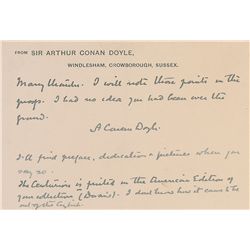 FROM SIR ARTHUR CONAN DOYLE,
WINDLESHAM, CROWBOROUGH, SUSSEX.
Many thanks. I will note those points in the
proofs. I had no idea you had been over the
ground.
A Conan Doyle.
I'll find preface, dedication & pictures when you
say so.
The Centurion is printed in the American Edition of
your collection (Doran's). I don't know how it came to be
out of the English.